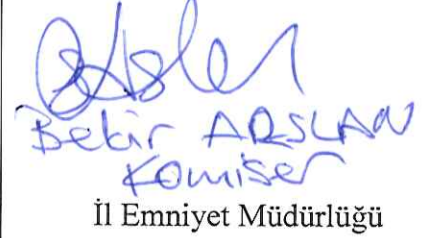 Bekir ARSLAN
Komiser
İl Emniyet Müdürlüğü